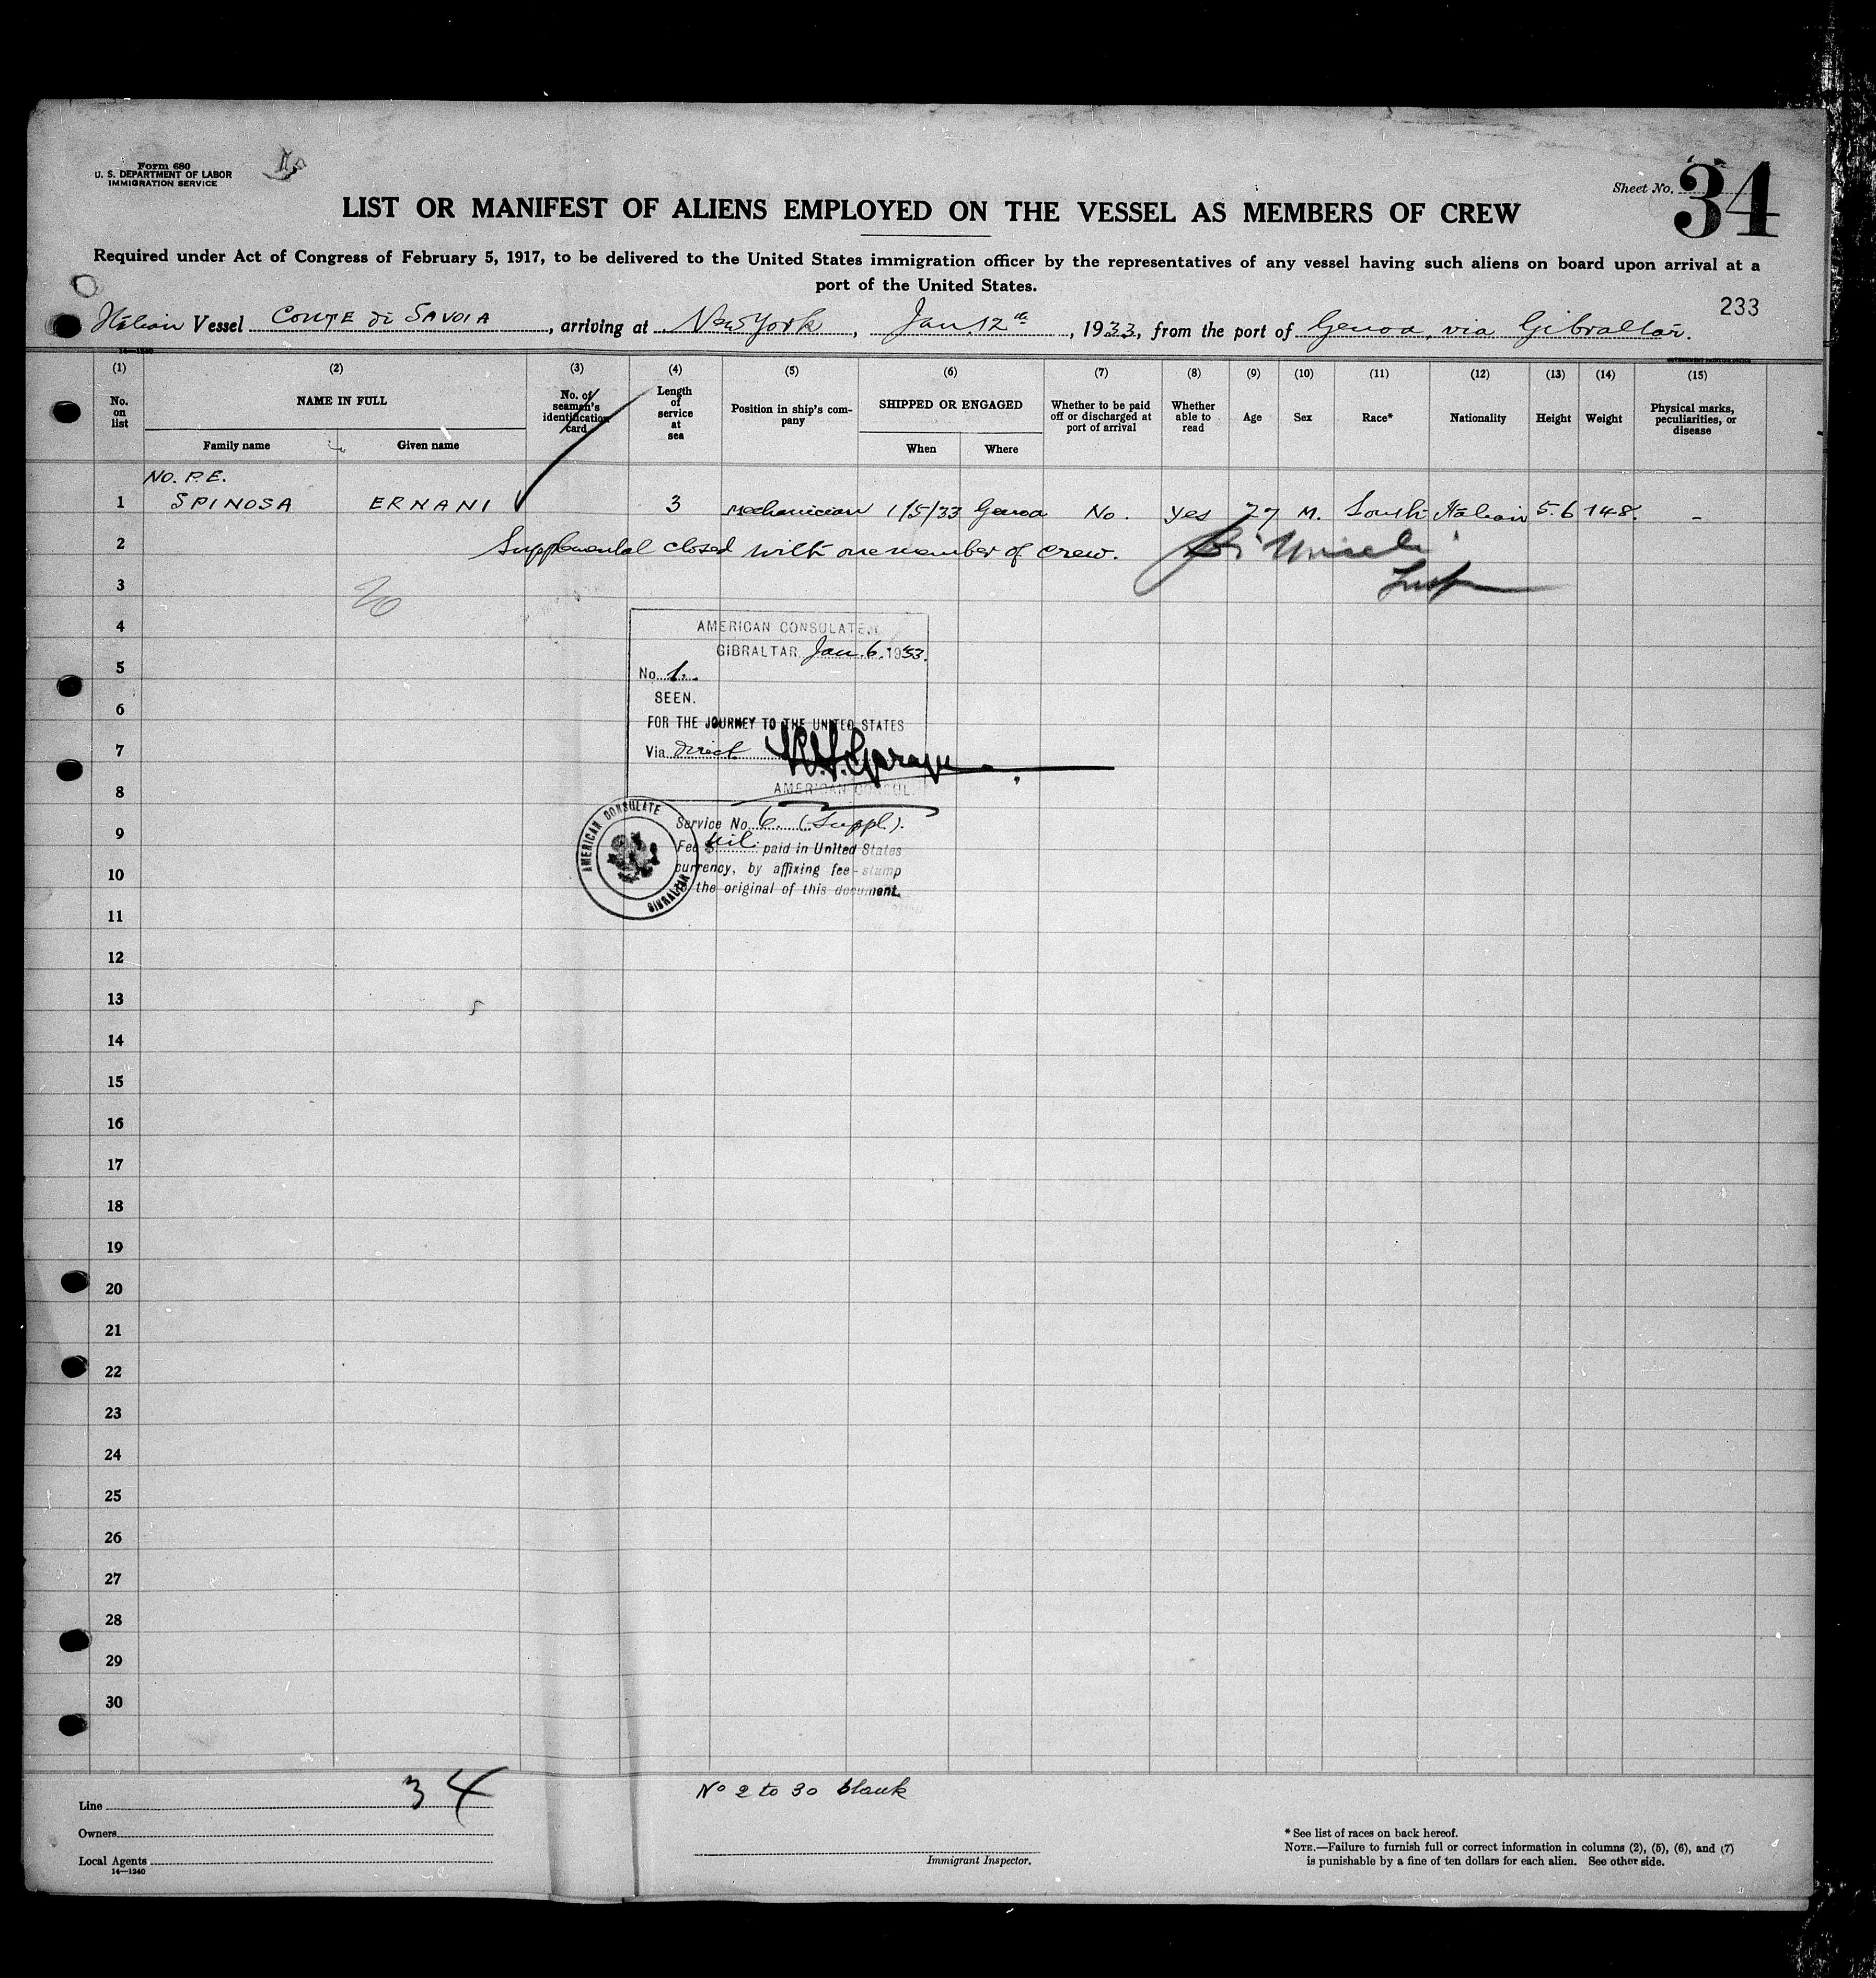 Form 680
U. S. DEPARTMENT OF LABOR
IMMIGRATION SERVICE
Sheet No. 34
LIST OR MANIFEST OF ALIENS EMPLOYED ON THE VESSEL AS MEMBERS OF CREW
Required under Act of Congress of February 5, 1917, to be delivered to the United States immigration officer by the representatives of any vessel having such aliens on board upon arrival at a
port of the United States.
233
Italian Vessel CONTE di SAVOIA, arriving at New York, Jan. 12th, 1933, from the port of Genoa, via Gibraltar.
14—1240
(1) (2) (3) (4) (5) (6) (7) (8) (9) (10) (11) (12) (13) (14) (15)
No. on list
NAME IN FULL
Family name
Given name
No. of seaman's identification card
Length of service at sea
Position in ship's company
SHIPPED OR ENGAGED
When
Where
Whether to be paid off or discharged at port of arrival
Whether able to read
Age
Sex
Race*
Nationality
Height
Weight
Physical marks, peculiarities, or disease
NO. P.E.
1 SPINOSA ERNANI 3 Mechanician 1/5/33 Genoa No. yes 27 M. South Italian 5.6 148. -
2 Supplemental closed with one member of crew.
3
4
5
6
7
8
9
10
11
12
13
14
15
16
17
18
19
20
21
22
23
24
25
26
27
28
29
30
AMERICAN CONSULATE
GIBRALTAR Jan. 6. 1933.
No. 1.
SEEN.
FOR THE JOURNEY TO THE UNITED STATES
Via Direct
AMERICAN CONSUL.
AMERICAN CONSULATE
GIBRALTAR
Service No. 6. (Suppl.).
Fee $ Nil. paid in United States
currency, by affixing fee-stamp
the original of this document.
34
No 2 to 30 blank
Line
Owners
Local Agents
14—1240
Immigrant Inspector.
* See list of races on back hereof.
NOTE.—Failure to furnish full or correct information in columns (2), (5), (6), and (7)
is punishable by a fine of ten dollars for each alien. See other side.